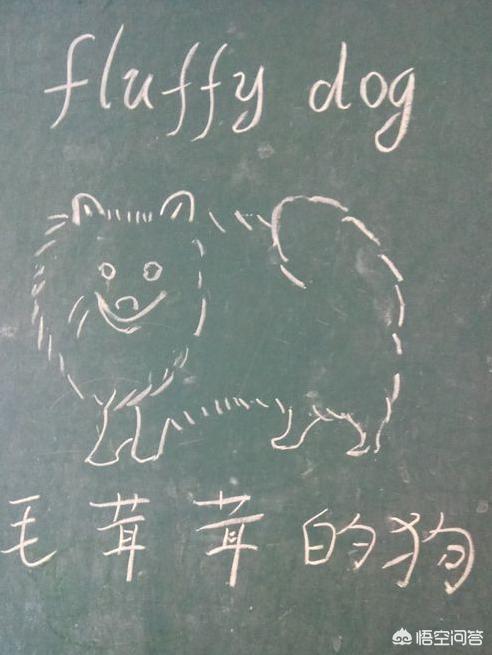 fluffy dog
毛茸茸的狗
悟空问答